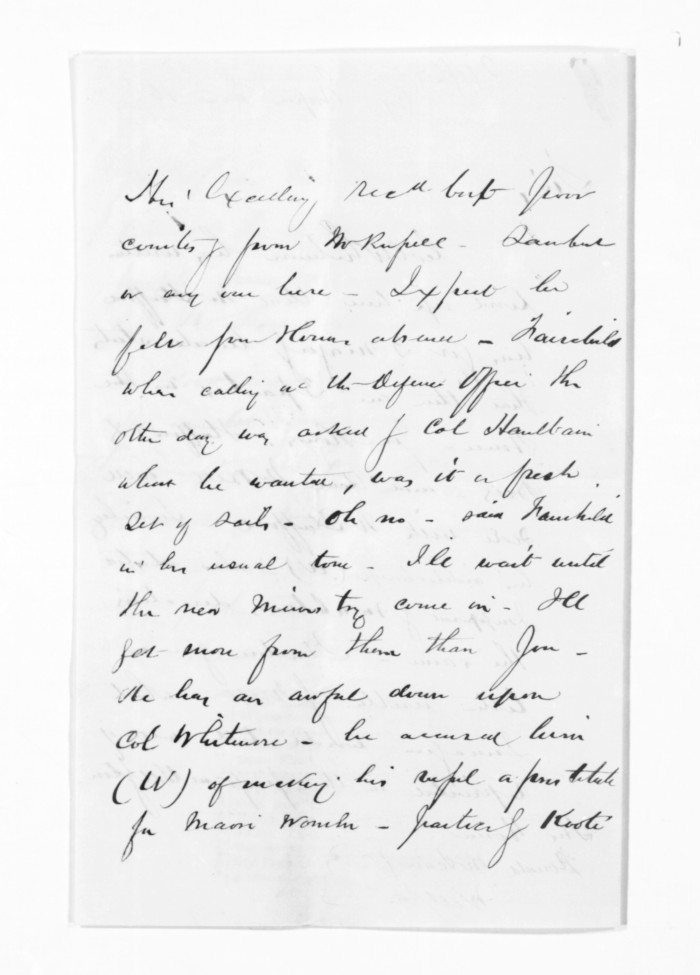 His Excellency recd but poor
courtesy from Mr Russell -
or any one here - I expect he
felt your Honor absence - Fairchild
when calling at the Defence Office the
other day was asked by Col Haultain
what he wanted, was it a fresh
set of sails - Oh no - said Fairchild
in his usual tone - I'll wait until
the new Ministry come in - I'll
get more from them than you -
He has an awful down upon
Col Whitmore - he accused him
(W) of making his vessel a prostitute
for Maori Women - Kooti